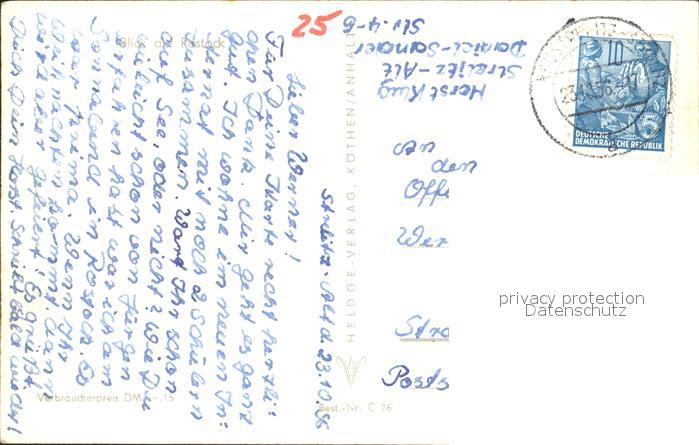 Blick auf Rostock
25
Strelitz-Alt d. 23.10.56
Lieber Werner!
Für Deine Karte recht herzli-
chen Dank. Mir geht es ganz
gut. Ich wohne im neuen In-
ternat mit noch 2 Schülern
zusammen. Wart Ihr schon
auf See, oder nicht? Wie Du
vieleicht schon von Jürgen
erfahren hast war ich am
Sonnabend in Rostock. Es
war prima. Wenn Ihr
Weihnachten kommt, dann
wird aber gefeiert! Es grüßt
Dich Dein Horst. Schreib bald wieder!
Verbraucherpreis DM -.15
Best.-Nr. C 76
HELDGE-VERLAG, KÖTHEN/ANHALT
Horst Klug
Strelitz-Alt
Daniel-Sander
Str. 4-6
An
den
Offi
Wer
Stra
Posts
10
5
DEUTSCHE
DEMOKRATISCHE REPUBLIK
privacy protection
Datenschutz